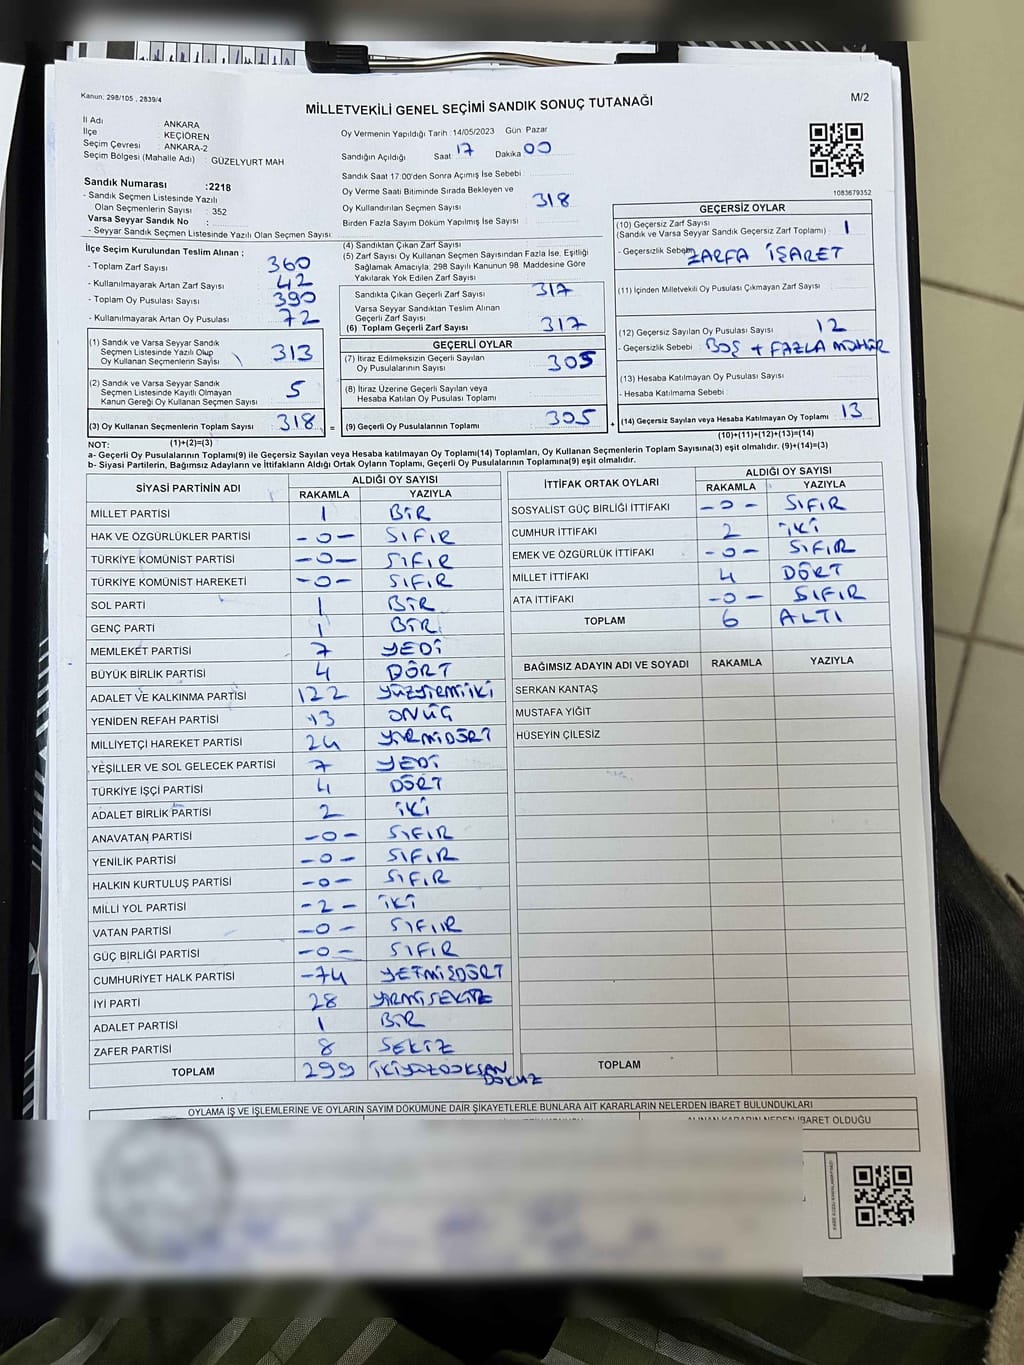 Kanun: 298/105 , 2839/4
MİLLETVEKİLİ GENEL SEÇİMİ SANDIK SONUÇ TUTANAĞI
M/2
İl Adı : ANKARA
İlçe : KEÇİÖREN
Seçim Çevresi : ANKARA-2
Seçim Bölgesi (Mahalle Adı) : GÜZELYURT MAH
Sandık Numarası :2218
- Sandık Seçmen Listesinde Yazılı
Olan Seçmenlerin Sayısı : 352
Varsa Seyyar Sandık No :
- Seyyar Sandık Seçmen Listesinde Yazılı Olan Seçmen Sayısı:
Oy Vermenin Yapıldığı Tarih :14/05/2023 Gün Pazar
Sandığın Açıldığı Saat 17 Dakika 00
Sandık Saat 17:00'den Sonra Açımış İse Sebebi :
Oy Verme Saati Bitiminde Sırada Bekleyen ve
Oy Kullandırılan Seçmen Sayısı : 318
Birden Fazla Sayım Döküm Yapılmış İse Sayısı :
1083679352
İlçe Seçim Kurulundan Teslim Alınan ;
- Toplam Zarf Sayısı : 360
- Kullanılmayarak Artan Zarf Sayısı : 42
- Toplam Oy Pusulası Sayısı : 390
- Kullanılmayarak Artan Oy Pusulası : 72
(1) Sandık ve Varsa Seyyar Sandık
Seçmen Listesinde Yazılı Olup
Oy Kullanan Seçmenlerin Sayısı : 313
(2) Sandık ve Varsa Seyyar Sandık
Seçmen Listesinde Kayıtlı Olmayan
Kanun Gereği Oy Kullanan Seçmen Sayısı : 5
(3) Oy Kullanan Seçmenlerin Toplam Sayısı : 318 =
(1)+(2)=(3)
(4) Sandıktan Çıkan Zarf Sayısı :
(5) Zarf Sayısı Oy Kullanan Seçmen Sayısından Fazla İse, Eşitliği
Sağlamak Amacıyla; 298 Sayılı Kanunun 98. Maddesine Göre
Yakılarak Yok Edilen Zarf Sayısı :
Sandıkta Çıkan Geçerli Zarf Sayısı : 317
Varsa Seyyar Sandıktan Teslim Alınan
Geçerli Zarf Sayısı :
(6) Toplam Geçerli Zarf Sayısı : 317
GEÇERLİ OYLAR
(7) İtiraz Edilmeksizin Geçerli Sayılan
Oy Pusulalarının Sayısı : 305
(8) İtiraz Üzerine Geçerli Sayılan veya
Hesaba Katılan Oy Pusulası Toplamı :
(9) Geçerli Oy Pusulalarının Toplamı : 305 +
GEÇERSİZ OYLAR
(10) Geçersiz Zarf Sayısı : 1
(Sandık ve Varsa Seyyar Sandık Geçersiz Zarf Toplamı)
- Geçersizlik Sebebi : ZARFA İŞARET
(11) İçinden Milletvekili Oy Pusulası Çıkmayan Zarf Sayısı :
(12) Geçersiz Sayılan Oy Pusulası Sayısı : 12
- Geçersizlik Sebebi : BOŞ + FAZLA MÜHÜR
(13) Hesaba Katılmayan Oy Pusulası Sayısı :
- Hesaba Katılmama Sebebi :
(14) Geçersiz Sayılan veya Hesaba Katılmayan Oy Toplamı : 13
(10)+(11)+(12)+(13)=(14)
NOT:
a- Geçerli Oy Pusulalarının Toplamı(9) ile Geçersiz veya Hesaba katılmayan Oy Toplamı(14) Toplamları, Oy Kullanan Seçmenlerin Toplam Sayısına(3) eşit olmalıdır. (9)+(14)=(3)
b- Siyasi Partilerin, Bağımsız Adayların ve İttifakların Aldığı Ortak Oyların Toplamı, Geçerli Oy Pusulalarının Toplamına(9) eşit olmalıdır.
SİYASİ PARTİNİN ADI ALDIĞI OY SAYISI
RAKAMLA YAZIYLA
MİLLET PARTİSİ 1 BİR
HAK VE ÖZGÜRLÜKLER PARTİSİ -0- SIFIR
TÜRKİYE KOMÜNİST PARTİSİ -0- SIFIR
TÜRKİYE KOMÜNİST HAREKETİ -0- SIFIR
SOL PARTİ 1 BİR
GENÇ PARTİ 1 BİR
MEMLEKET PARTİSİ 7 YEDİ
BÜYÜK BİRLİK PARTİSİ 4 DÖRT
ADALET VE KALKINMA PARTİSİ 122 YÜZYİRMİİKİ
YENİDEN REFAH PARTİSİ 13 ONÜÇ
MİLLİYETÇİ HAREKET PARTİSİ 24 YİRMİDÖRT
YEŞİLLER VE SOL GELECEK PARTİSİ 7 YEDİ
TÜRKİYE İŞÇİ PARTİSİ 4 DÖRT
ADALET BİRLİK PARTİSİ 2 İKİ
ANAVATAN PARTİSİ -0- SIFIR
YENİLİK PARTİSİ -0- SIFIR
HALKIN KURTULUŞ PARTİSİ -0- SIFIR
MİLLİ YOL PARTİSİ -2- İKİ
VATAN PARTİSİ -0- SIFIR
GÜÇ BİRLİĞİ PARTİSİ -0- SIFIR
CUMHURİYET HALK PARTİSİ -74 YETMİŞDÖRT
İYİ PARTİ 28 YİRMİSEKİZ
ADALET PARTİSİ 1 BİR
ZAFER PARTİSİ 8 SEKİZ
TOPLAM 299 İKİYÜZDOKSAN
DOKUZ
İTTİFAK ORTAK OYLARI ALDIĞI OY SAYISI
RAKAMLA YAZIYLA
SOSYALİST GÜÇ BİRLİĞİ İTTİFAKI -0- SIFIR
CUMHUR İTTİFAKI 2 İKİ
EMEK VE ÖZGÜRLÜK İTTİFAKI -0- SIFIR
MİLLET İTTİFAKI 4 DÖRT
ATA İTTİFAKI -0- SIFIR
TOPLAM 6 ALTI
BAĞIMSIZ ADAYIN ADI VE SOYADI RAKAMLA YAZIYLA
SERKAN KANTAŞ
MUSTAFA YİĞİT
HÜSEYİN ÇİLESİZ
TOPLAM
OYLAMA İŞ VE İŞLEMLERİNE VE OYLARIN SAYIM DÖKÜMÜNE DAİR ŞİKAYETLERLE BUNLARA AİT KARARLARIN NELERDEN İBARET BULUNDUKLARI
ALINAN KARARIN NEDEN İBARET OLDUĞU